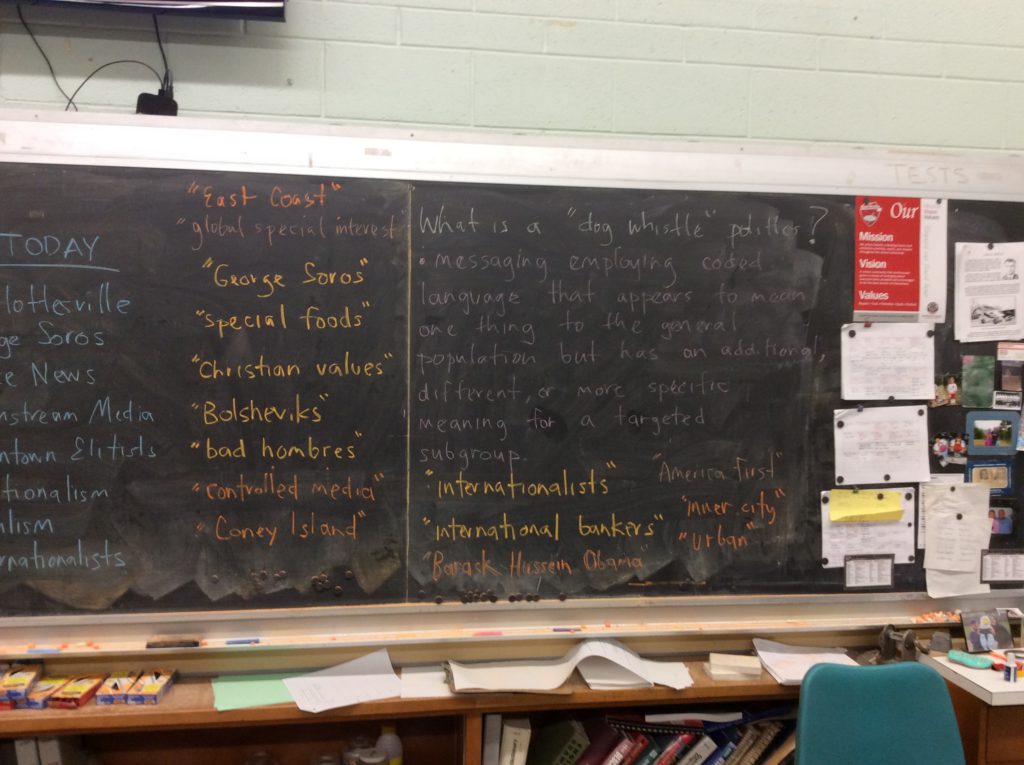 TODAY
lottesville
ge Soros
e News
nstream Media
ntown Elitists
tionalism
alism
rnationalists
"East Coast"
"global special interest"
"George Soros"
"special foods"
"Christian values"
"Bolsheviks"
"bad hombres"
"controlled media"
"Coney Island"
What is a "dog whistle" politics?
• messaging employing coded
language that appears to mean
one thing to the general
population but has an additional,
different, or more specific
meaning for a targeted
subgroup.
"America first"
"internationalists"
"inner city"
"international bankers"
"urban"
"Barack Hussein Obama"
TESTS
Our
Mission
Vision
Values